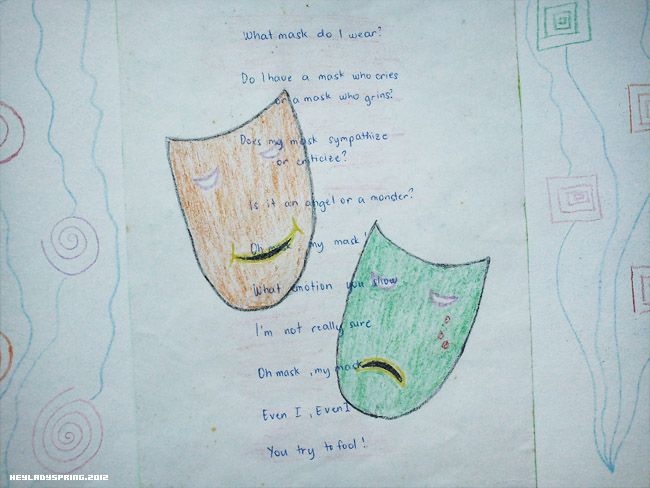 What mask do I wear?
Do I have a mask who cries
or a mask who grins?
Does my mask sympathize
or criticize?
Is it an angel or a monster?
Oh mask, my mask!
What emotion you show
I'm not really sure
Oh mask, my mask
Even I, Even I
You try to fool!
HEYLADYSPRING.2012